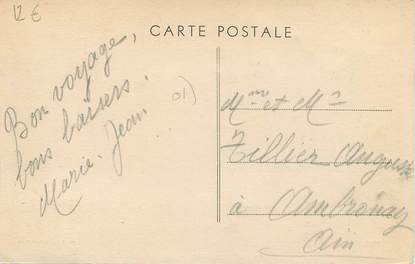 12 €
CARTE POSTALE
Bon voyage,
bons baisers.
Marie-Jean
01)
Mme et Mr
Tillier Auguste
à Ambronay
Ain